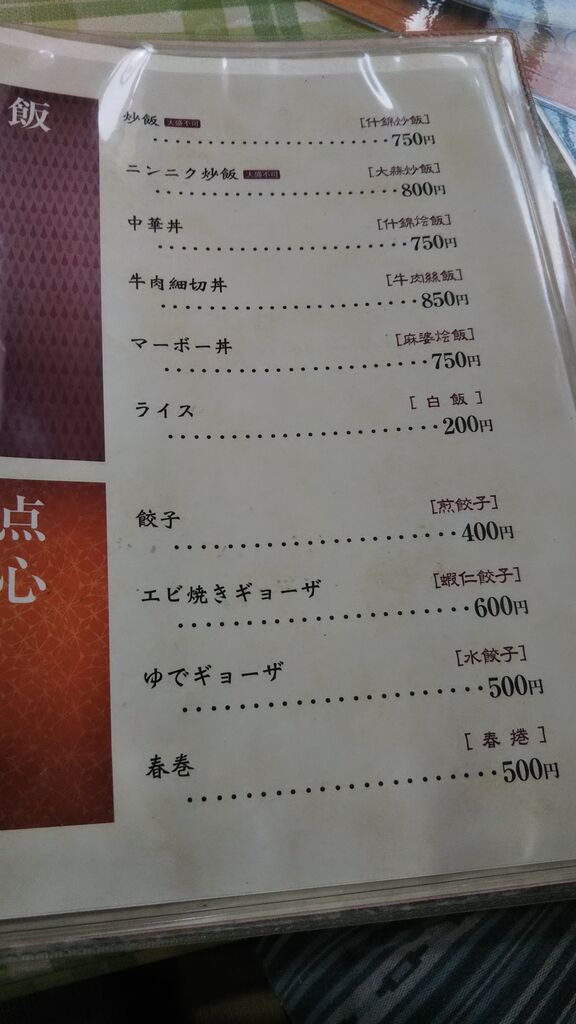 飯
炒飯 大盛不可 [什錦炒飯]
750円
ニンニク炒飯 大盛不可 [大蒜炒飯]
800円
中華丼 [什錦烩飯]
750円
牛肉細切丼 [牛肉絲飯]
850円
マーボー丼 [麻婆烩飯]
750円
ライス [白飯]
200円
点心
餃子 [煎餃子]
400円
エビ焼きギョーザ [蝦仁餃子]
600円
ゆでギョーザ [水餃子]
500円
春巻 [春捲]
500円